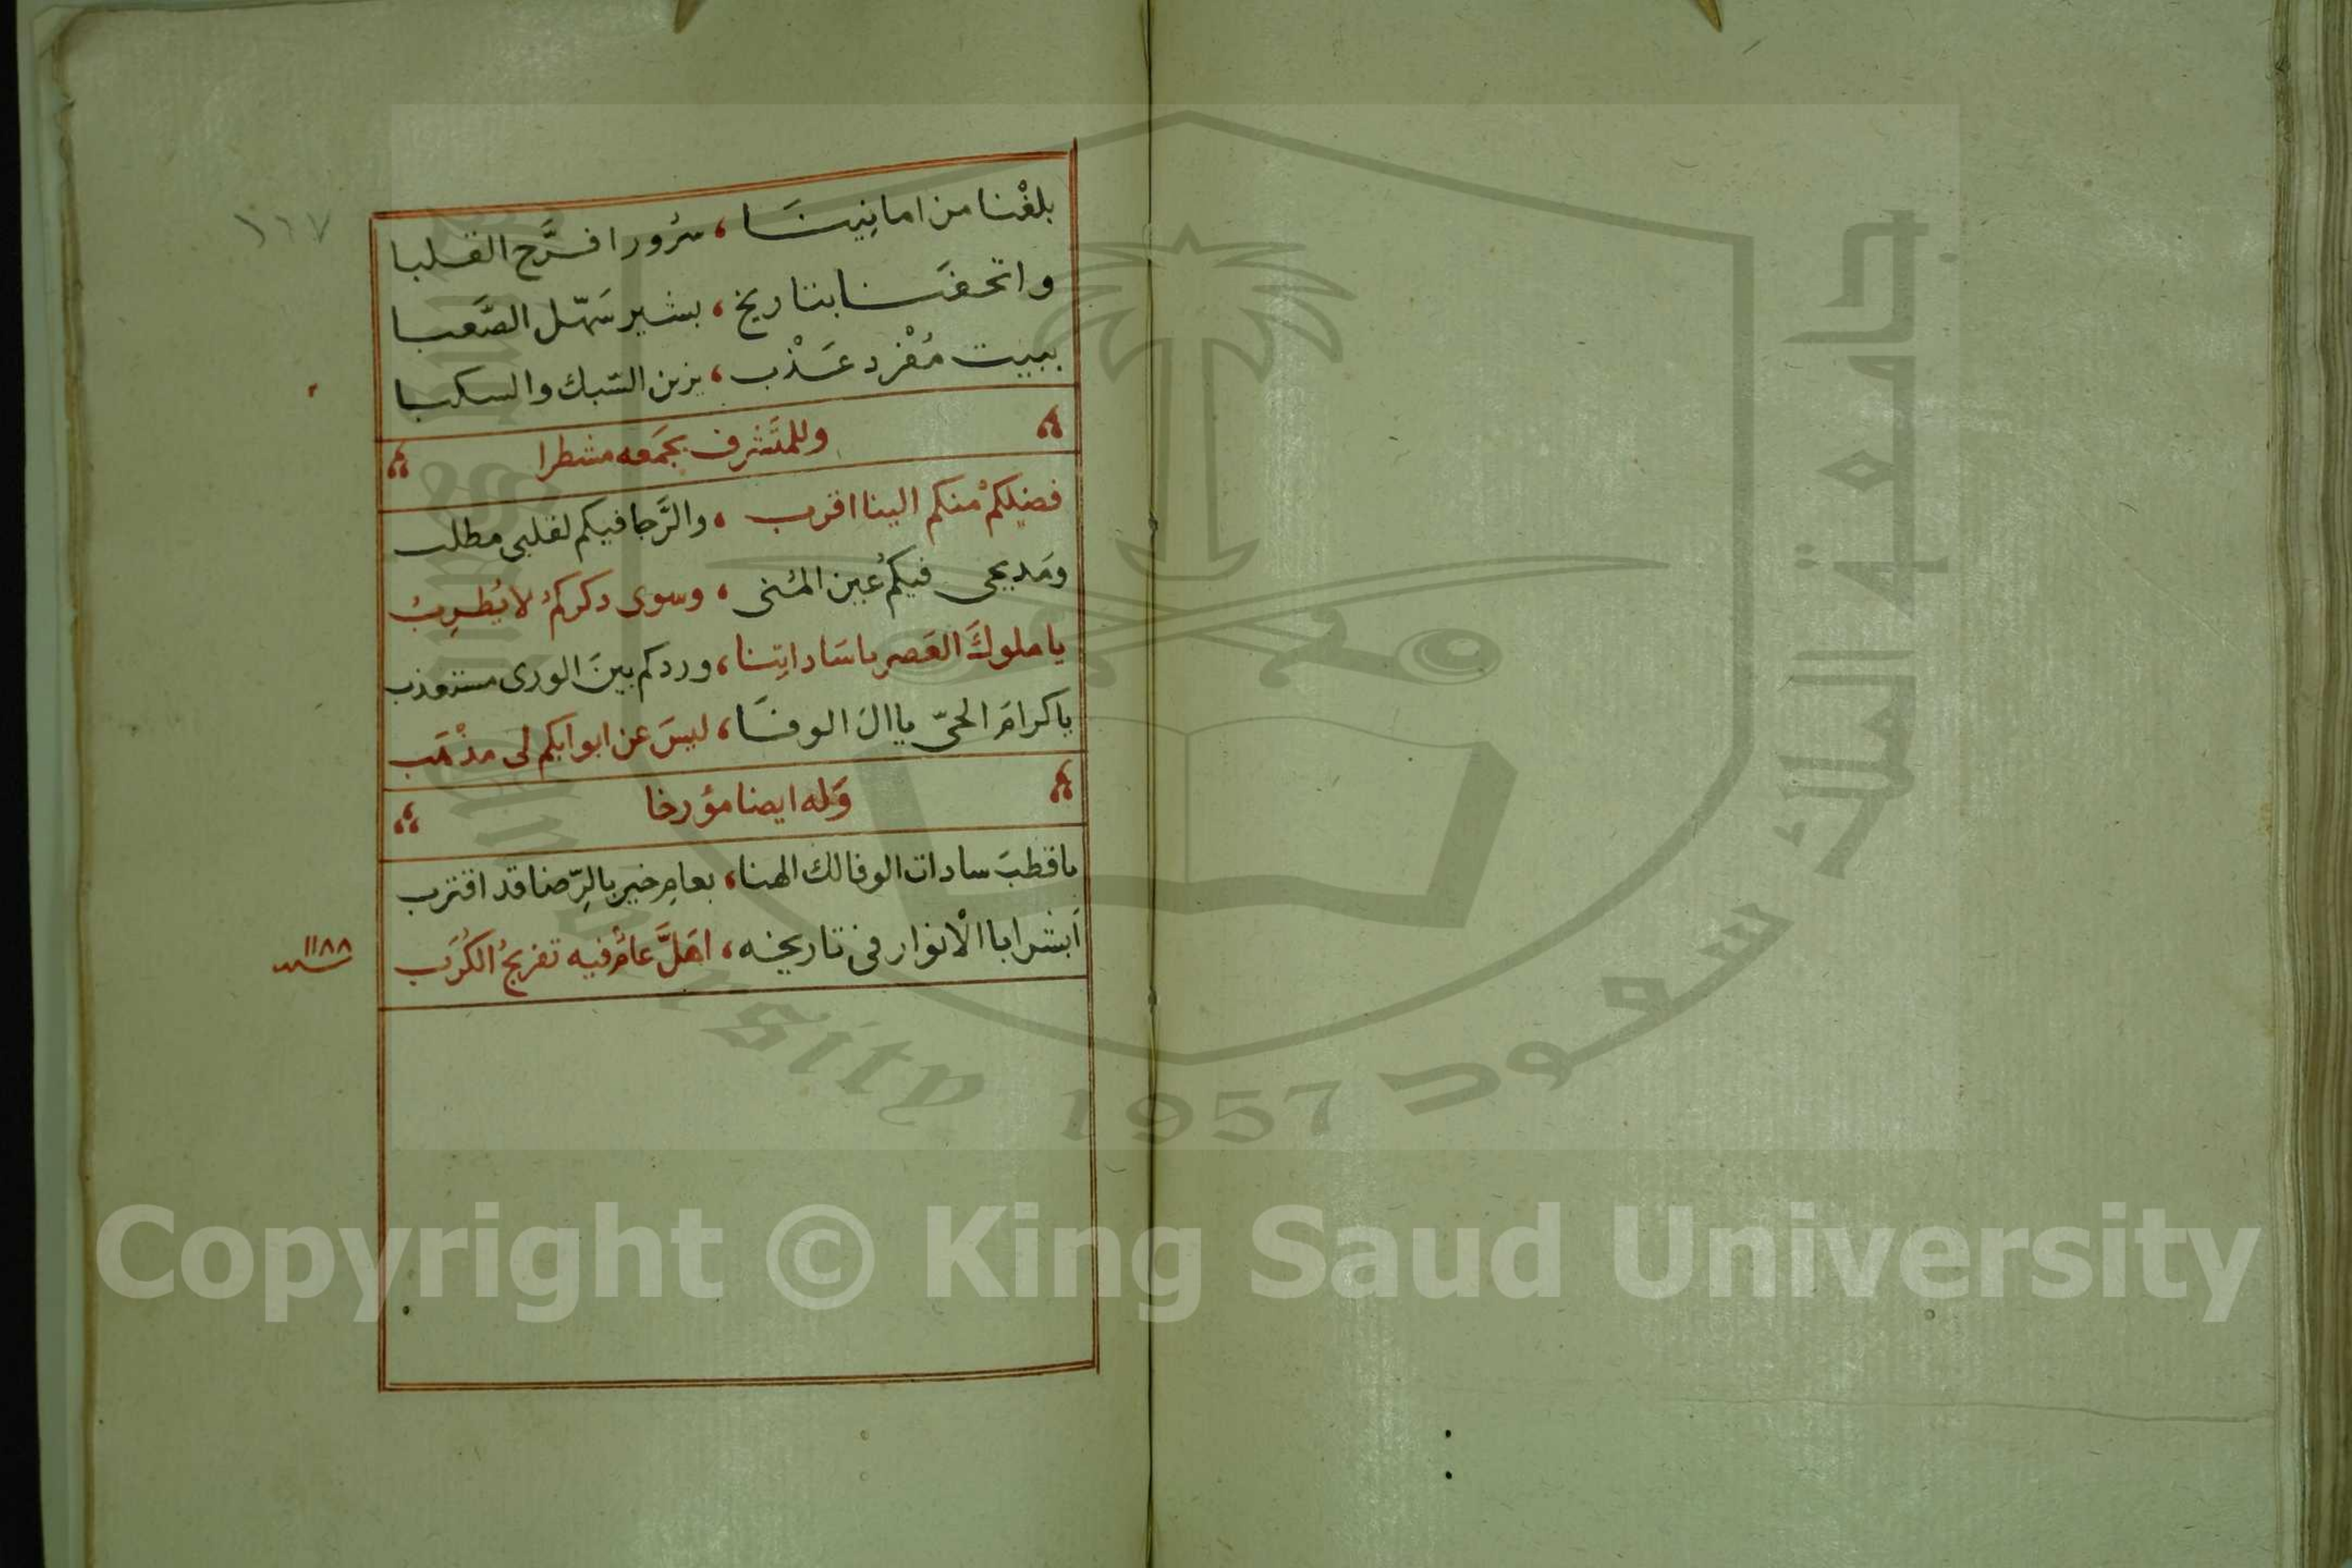 ١٦٧
بلغْنا من امانِينَا ، سُرورا فرَّح القلبا
واتحفَنا بتاريخ ، بشير سَهّل الصَّعبا
ببيت مُفْرد عَذْب ، يزين السّبك والسكبا
وللمتَشرف بجمَعه مشطرا
فضلكمْ منكم الينا اقرب ، والرَّجا فيكم لقلبى مطلب
ومَديحى فيكمُ عين المُنى ، وسوى ذكركمُ لا يُطرِبُ
يا ملوكَ العَصر يا سَاداتِنا ، وردكم بينَ الورى مستعذب
يا كرامَ الحىّ يا الَ الوفَا ، ليسَ عن ابوابكم لى مذْهَب
وَله ايضا مؤرخا
يا قطبَ سادات الوفا لك الهنا ، بعامِ خير بالرِّضا قد اقترب
اَبشر ابا الْانوار فى تاريخه ، اهَلَّ عامٌ فيه تفريجُ الكُرَب
١١٨٨
سنه
جامعة الملك سعود
King Saud University 1957
Copyright © King Saud University